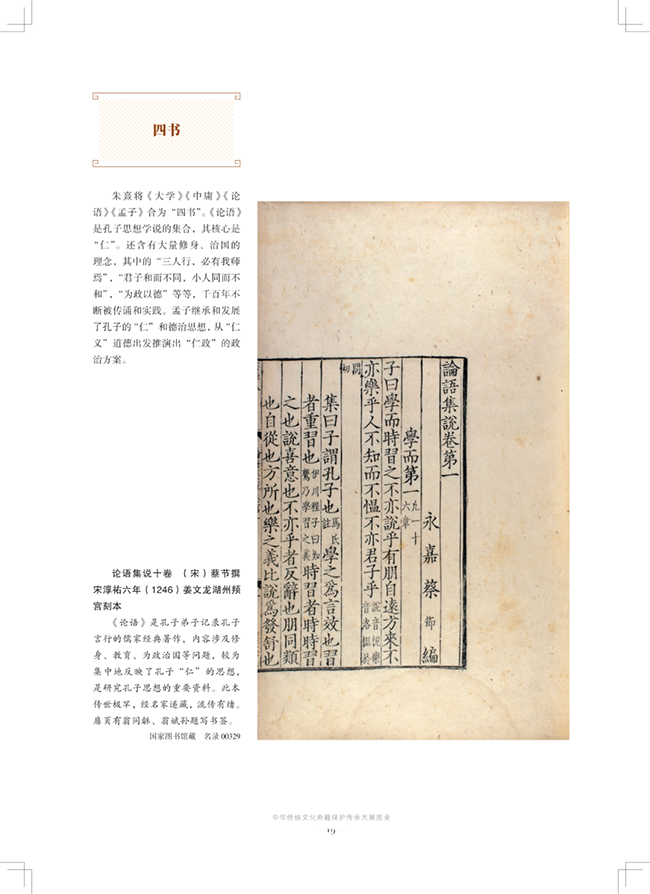 四书
朱熹将《大学》《中庸》《论
语》《孟子》合为“四书”。《论语》
是孔子思想学说的集合，其核心是
“仁”。还含有大量修身、治国的
理念，其中的“三人行，必有我师
焉”，“君子和而不同，小人同而不
和”，“为政以德”等等，千百年不
断被传诵和实践。孟子继承和发展
了孔子的“仁”和德治思想，从“仁
义”道德出发推演出“仁政”的政
治方案。
論語集說卷第一
永嘉蔡節編
學而第一凡一十六章
子曰學而時習之不亦說乎有朋自遠方來不
亦樂乎人不知而不慍不亦君子乎說音悅樂音洛慍
集曰子謂孔子也馬氏註學之爲言效也習
者重習也伊川程子曰如鷙乃學習之義時習者時時習
之也說喜意也不亦乎者反辭也朋同類
也自從也方所也樂之義比說爲發舒也
论语集说十卷 （宋）蔡节撰
宋淳祐六年（1246）姜文龙湖州頖
宫刻本
《论语》是孔子弟子记录孔子
言行的儒家经典著作，内容涉及修
身、教育、为政治国等问题，较为
集中地反映了孔子“仁”的思想，
是研究孔子思想的重要资料。此本
传世极罕，经名家递藏，流传有绪。
扉页有翁同龢、翁斌孙题写书签。
国家图书馆藏 名录 00329
中华传统文化典籍保护传承大展图录
19